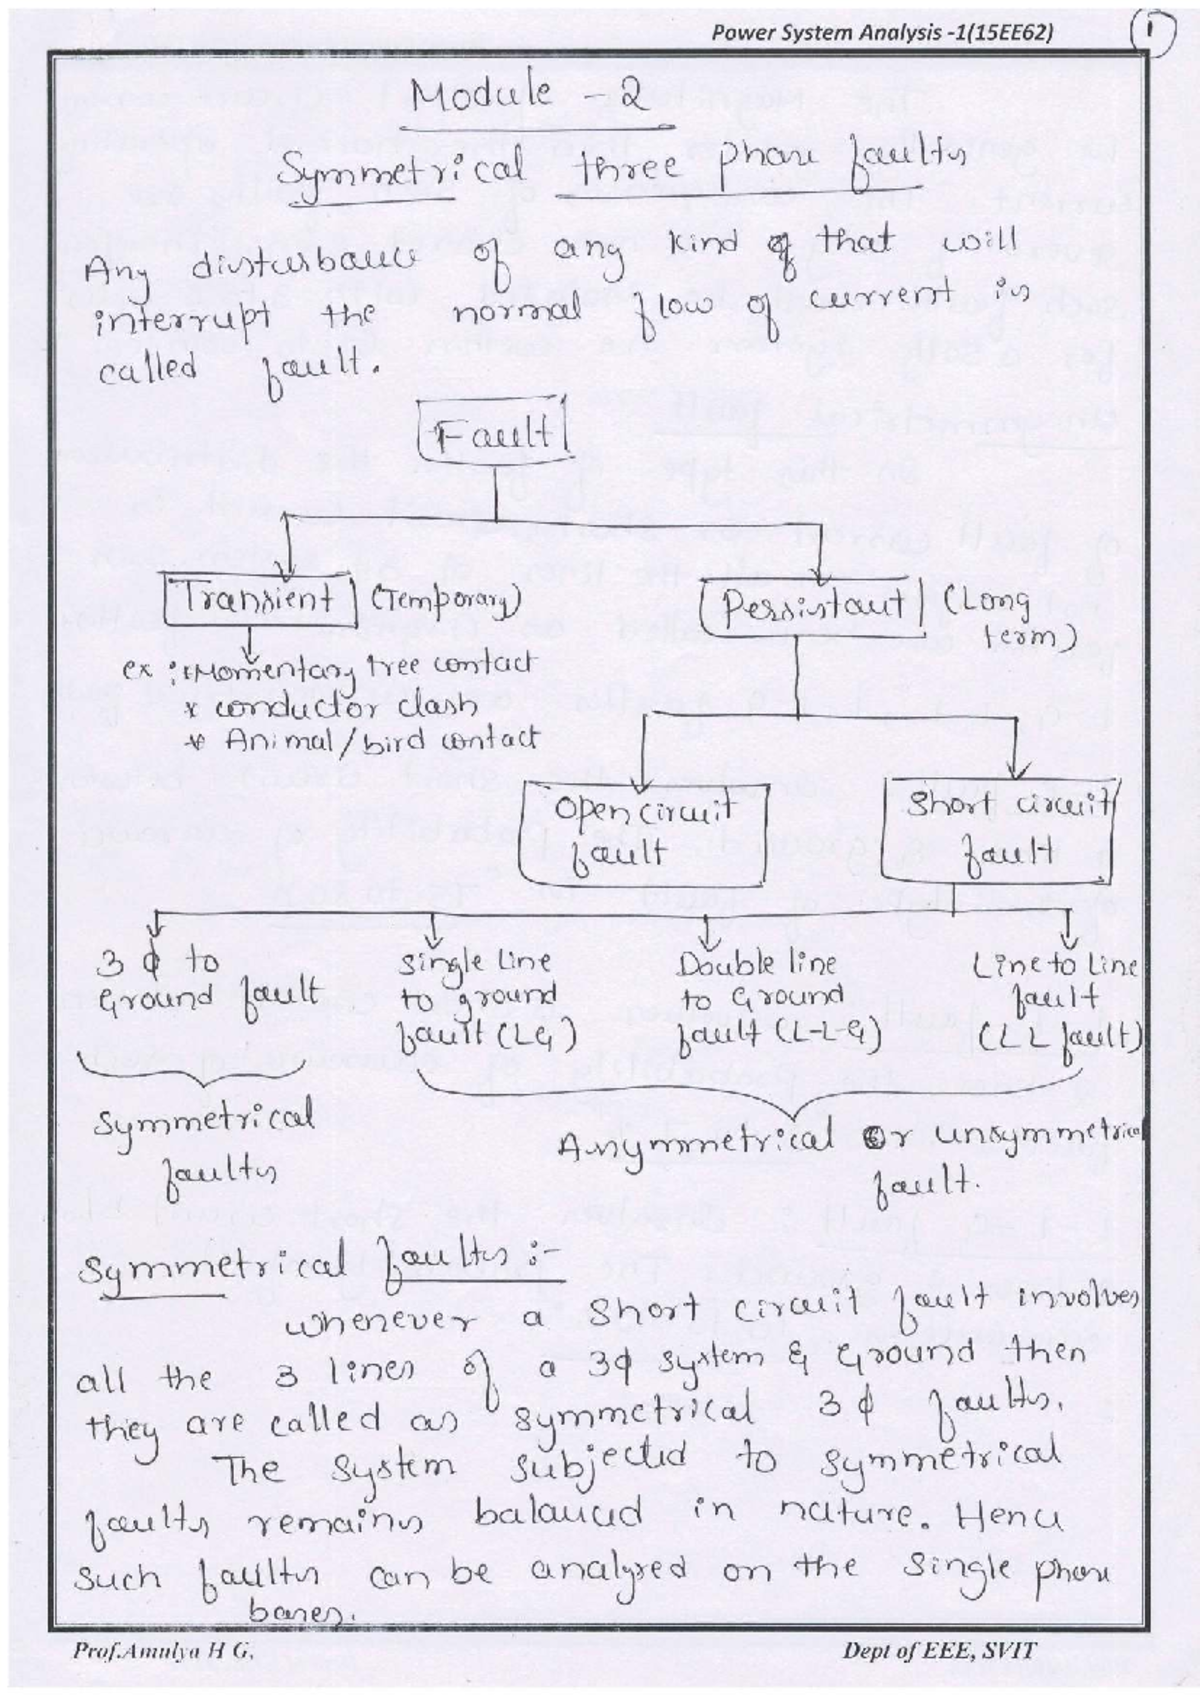 Power System Analysis -1(15EE62)
1
Module - 2
Symmetrical three phase faults
Any disturbance of any kind of that will
interrupt the normal flow of current is
called fault.
Fault
Transient (Temporary)
Persistant (Long term)
ex :* Momentary tree contact
* conductor clash
* Animal/bird contact
Open circuit
fault
Short circuit
fault
3 ϕ to
Ground fault
Single Line
to ground
fault (LG)
Double line
to Ground
fault (L-L-G)
Line to Line
fault
(LL fault)
Symmetrical
faults
Asymmetrical Or unsymmetrical
fault.
Symmetrical faults :-
whenever a short circuit fault involves
all the 3 lines of a 3ϕ system & Ground then
they are called as symmetrical 3ϕ faults.
The system subjected to symmetrical
faults remains balanced in nature. Hence
such faults can be analysed on the single phase
bases.
Prof.Amulya H G,
Dept of EEE, SVIT